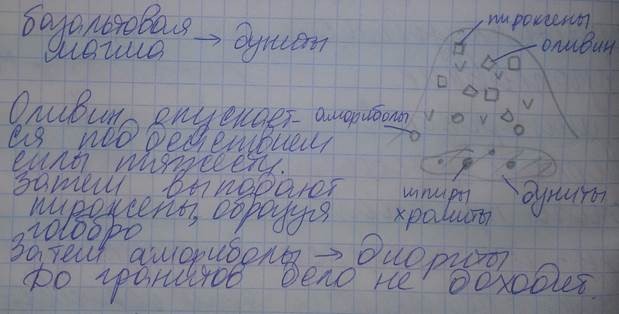 базальтовая
магма → дуниты
пироксены
оливин
амфиболы
Оливин опускает-
ся под действием
силы тяжести.
Затем выпадают
пироксены, образуя
габбро
Затем амфиболы → диориты
До гранитов дело не доходит.
шлиры
хромиты
дуниты